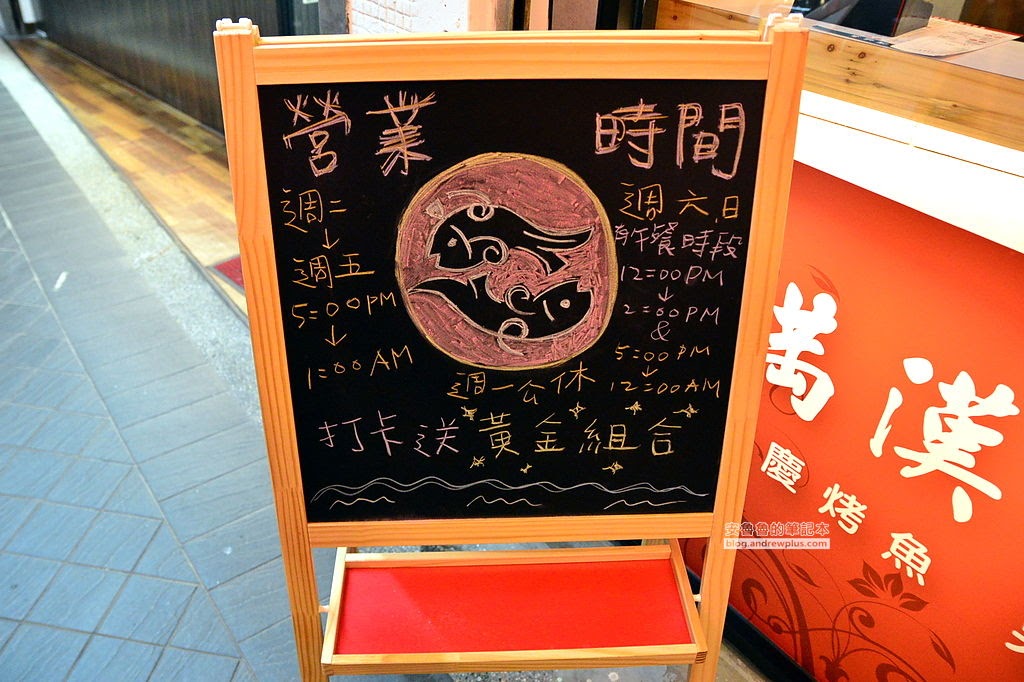 營業 時間
週二
↓
週五
5:00PM
↓
1:00 AM
週六.日
有午餐時段
12:00PM
↓
2:00PM
&
5:00PM
↓
12:00AM
週一公休
打卡送黃金組合
萬 漢
慶烤魚
安魯魯的筆記本
blog.andrewplus.com